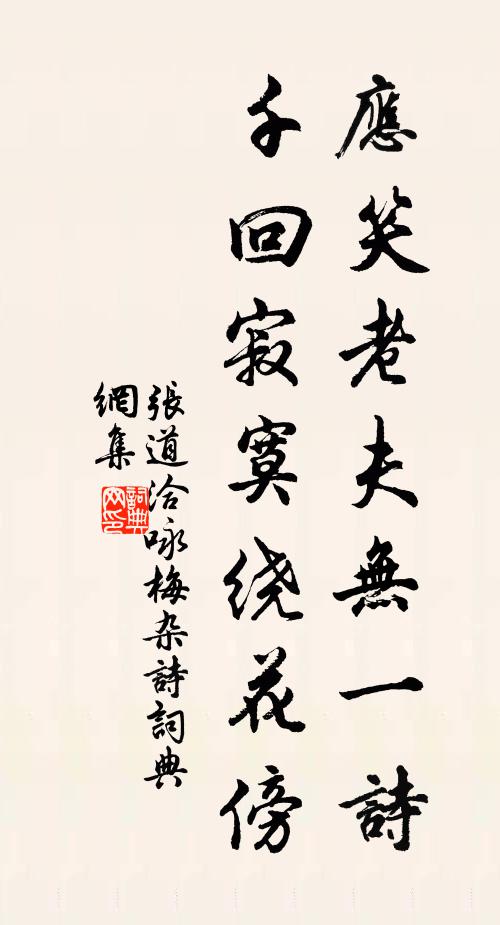 應笑老夫無一詩
千回寂寞绕花傍
張道洽咏梅杂詩詞典
網集
詞典网印